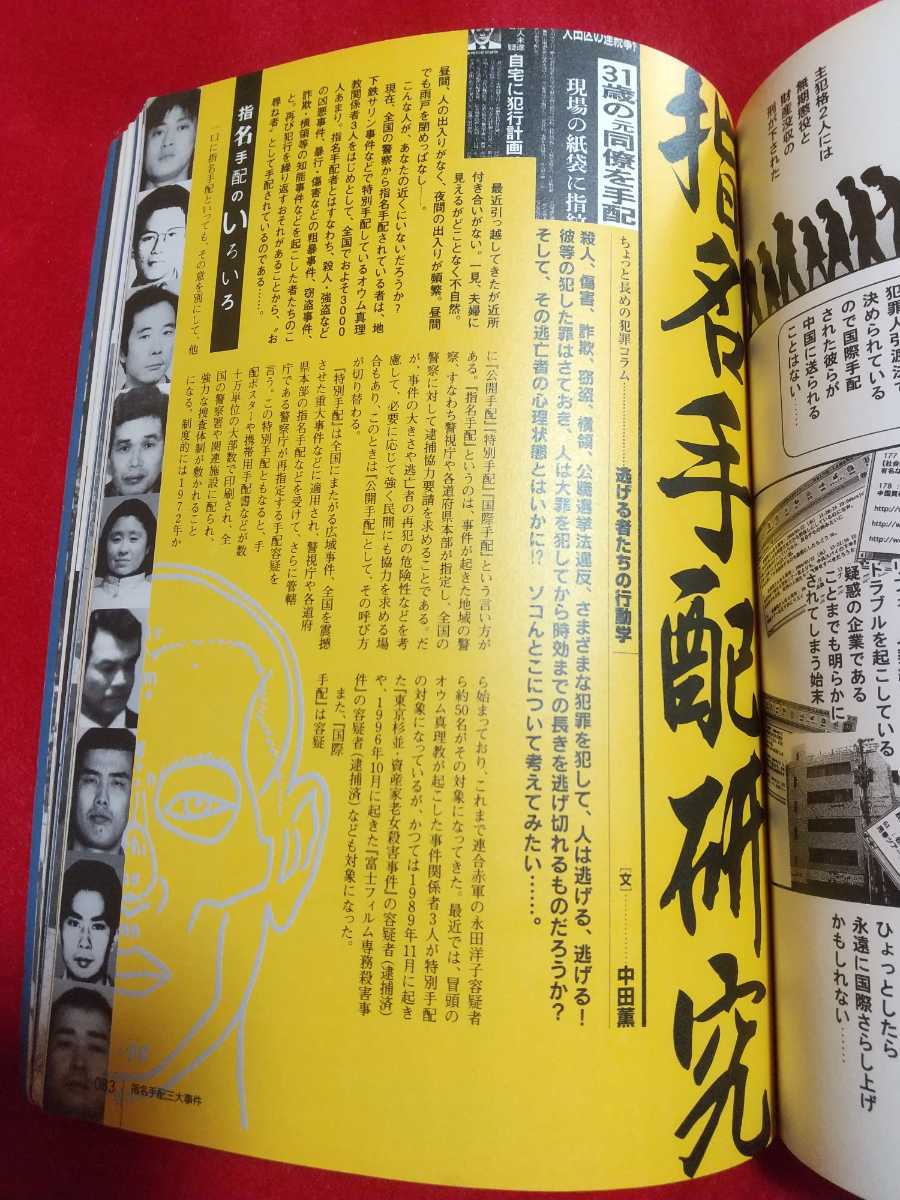 指名手配研究
ちょっと長めの犯罪コラム
逃げる者たちの行動学
[文]
中田薫
殺人、傷害、詐欺、窃盗、横領、公職選挙法違反、さまざまな犯罪を犯して、人は逃げる、逃げる!
彼等の犯した罪はさておき、人は大罪を犯してから時効までの長きを逃げ切れるものだろうか?
そして、その逃亡者の心理状態とはいかに!? ソコんとこについて考えてみたい……。
31歳の元同僚を手配
現場の紙袋に指紋
自宅に犯行計画
最近引っ越してきたが近所
付き合いがない。一見、夫婦に
見えるがどことなく不自然。
昼間、人の出入りがなく、夜間の出入りが頻繁。昼間
でも雨戸を閉めっぱなし――。
こんな人が、あなたの近くにいないだろうか?
現在、全国の警察から指名手配されている者は、地
下鉄サリン事件などで特別手配しているオウム真理
教関係者3人をはじめとして、全国でおよそ3000
人あまり。指名手配者とはすなわち、殺人・強盗など
の凶悪事件、暴行・傷害などの粗暴事件、窃盗事件、
詐欺・横領等の知能事件などを起こした者たちのこ
と。再び犯行を繰り返すおそれがあることから、“お
尋ね者”として手配されているのである……。
指名手配のいろいろ
一口に指名手配といっても、その意を別にして、他
に『公開手配』『特別手配』『国際手配』という言い方が
ある。『指名手配』というのは、事件が起きた地域の警
察、すなわち警視庁や各道府県本部が指定し、全国の
警察に対して逮捕協力要請を求めることである。だ
が、事件の大きさや逃亡者の再犯の危険性などを考
慮して、必要に応じて強く民間にも協力を求める場
合もあり、このときは『公開手配』として、その呼び方
が切り替わる。
『特別手配』は全国にまたがる広域事件、全国を震撼
させた重大事件などに適用され、警視庁や各道府
県本部の指名手配などを受けて、さらに管轄
庁である警察庁が再指定する手配容疑を
言う。この特別手配ともなると、手
配ポスターや携帯用手配書などが数
十万単位の大部数で印刷され、全
国の警察署や関連施設に配られ、
強力な捜査体制が敷かれること
になる。制度的には1972年か
ら始まっており、これまで連合赤軍の永田洋子容疑者
ら約50名がその対象になってきた。最近では、冒頭の
オウム真理教が起こした事件関係者3人が特別手配
の対象になっているが、かつては1989年11月に起き
た『東京杉並・資産家老女殺害事件』の容疑者(逮捕済)
や、1996年10月に起きた『富士フィルム専務殺害事
件』の容疑者(逮捕済)なども対象になった。
また、『国際
手配』は容疑
083
指名手配三大事件
主犯格2人には
無期懲役と
財産没収の
刑が下された
犯罪人引渡法で
決められている
ので国際手配
された彼らが
中国に送られる
ことはない……
トラブルを起こしている
疑惑の企業である
ことまでも明らかに
されてしまう始末
ひょっとしたら
永遠に国際さらし上げ
かもしれない……